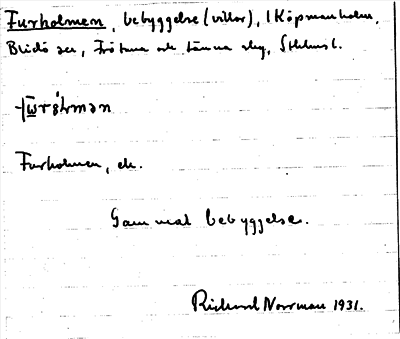 Furholmen, bebyggelse (villor), i Köpmanholm,
Blidö sn, Frötuna och Länna slg, Sthlms l.
Furholmen, ek.
Gammal bebyggelse.
Rickard Norrman 1931.